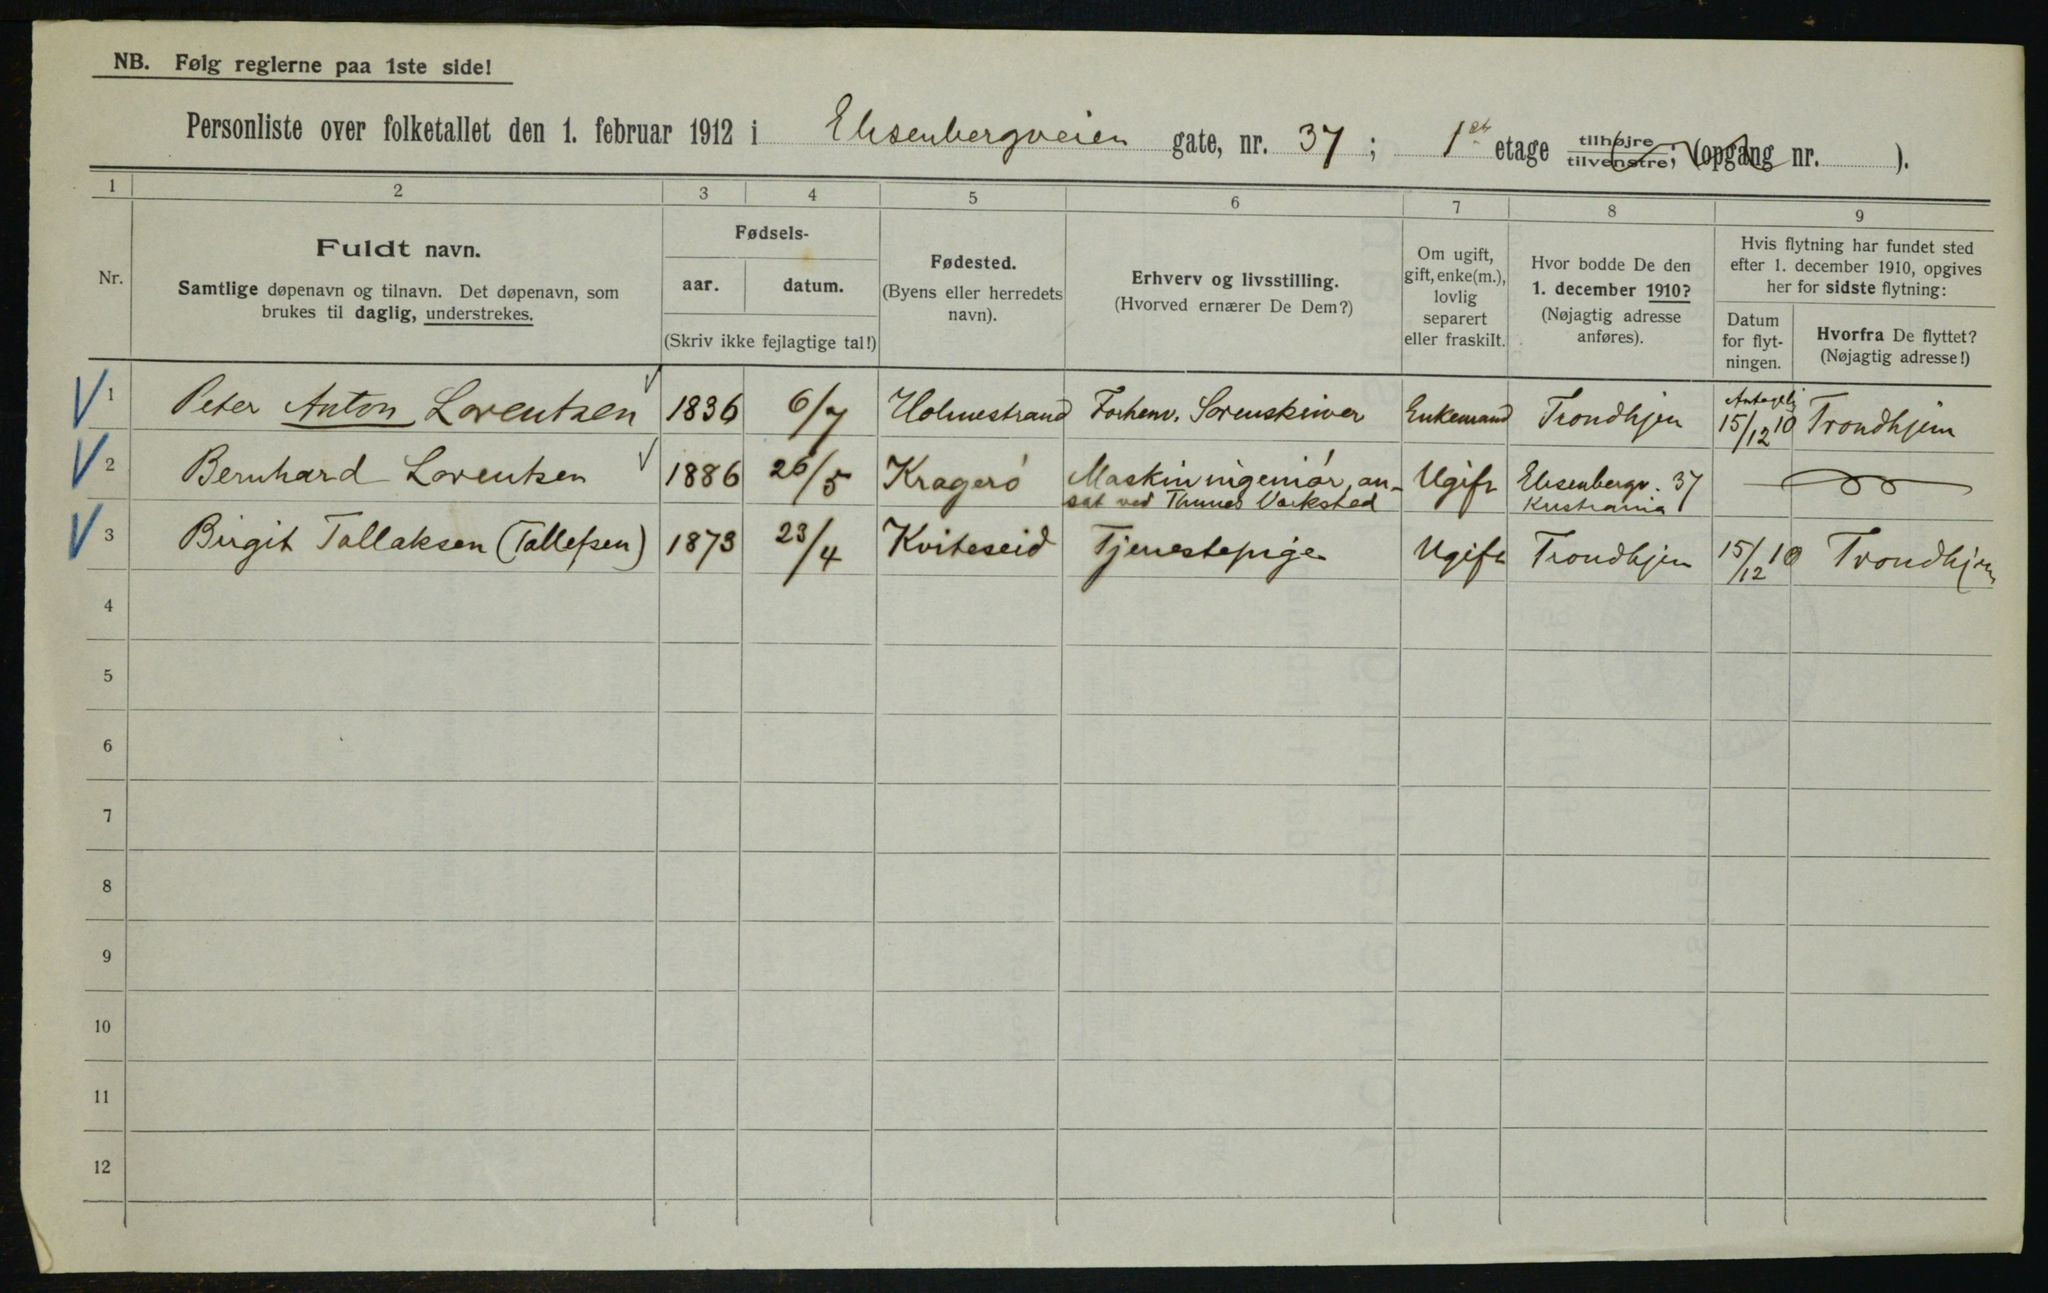 NB. Følg reglerne paa 1ste side!
Personliste over folketallet den 1. februar 1912 i Elisenbergveien gate, nr. 37 ; 1st etage tilhøjre / tilvenstre; (opgang nr. ).
1 2 3 4 5 6 7 8 9
Nr.
Fuldt navn.
Samtlige døpenavn og tilnavn. Det døpenavn, som
brukes til daglig, understrekes.
Fødsels-
aar. datum.
(Skriv ikke fejlagtige tal!)
Fødested.
(Byens eller herredets
navn).
Erhverv og livsstilling.
(Hvorved ernærer De Dem?)
Om ugift,
gift, enke(m.),
lovlig
separert
eller fraskilt.
Hvor bodde De den
1. december 1910?
(Nøjagtig adresse
anføres).
Hvis flytning har fundet sted
efter 1. december 1910, opgives
her for sidste flytning:
Datum
for flyt-
ningen.
Hvorfra De flyttet?
(Nøjagtig adresse!)
1 Peter Anton Lorentzen 1836 6/7 Holmestrand Forhenv. Sorenskriver Enkemand Trondhjem Antagelig 15/12 10 Trondhjem
2 Bernhard Lorentzen 1886 26/5 Kragerö Maskiningeniör, an-
sat ved Thunes Værksted Ugift Elisenbergv. 37
Kristiania
3 Birgit Tallaksen (Tallefsen) 1873 23/4 Kviteseid Tjenestepige Ugift Trondhjem 15/12 10 Trondhjem
4
5
6
7
8
9
10
11
12